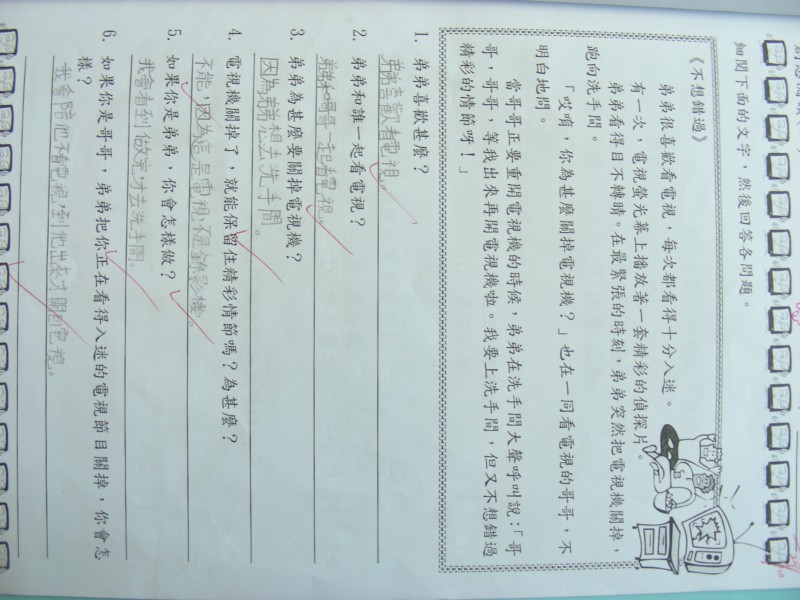 細閱下面的文字，然後回答各問題。
《不想錯過》
弟弟很喜歡看電視，每次都看得十分入迷。
有一次，電視螢光幕上播放著一套精彩的偵探片。
弟弟看得目不轉睛。在最緊張的時刻，弟弟突然把電視機關掉，
跑向洗手間。
「哎唷，你為甚麼關掉電視機？」也在一同看電視的哥哥，不
明白地問。
當哥哥正要重開電視機的時候，弟弟在洗手間大聲呼叫說：「哥
哥，哥哥，等我出來再開電視機啦。我要上洗手間，但又不想錯過
精彩的情節呀！」
1. 弟弟喜歡甚麼？
弟弟喜歡看電視。
2. 弟弟和誰一起看電視？
弟弟和哥哥一起看電視。
3. 弟弟為甚麼要關掉電視機？
因為弟弟想去洗手間。
4. 電視機關掉了，就能保留住精彩情節嗎？為甚麼？
不能，因為這是電視不是錄影機。
5. 如果你是弟弟，你會怎樣做？
我會看到做完才去洗手間。
6. 如果你是哥哥，弟弟把你正在看得入迷的電視節目關掉，你會怎
樣？
我會陪他不看電視，到他出來才開回電視。